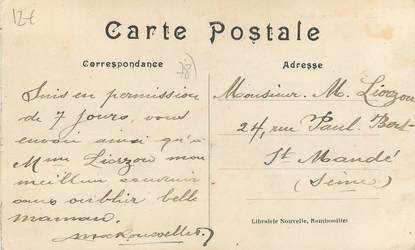 12€
Carte Postale
Correspondance
78
Adresse
Suis en permission
de 7 Jours, vous
envoie ainsi qu'à
Mme Liorzou mon
meilleur souvenir
sans oublier belle
maman.
Monsieur M. Liorzou
24, rue Paul Bert
St Mandé
(Seine)
Librairie Nouvelle, Rambouillet